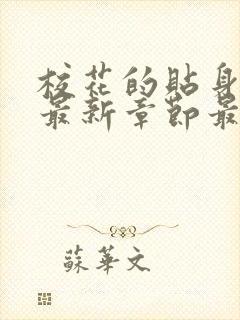 校花的貼身
最新章節最
蘇華文